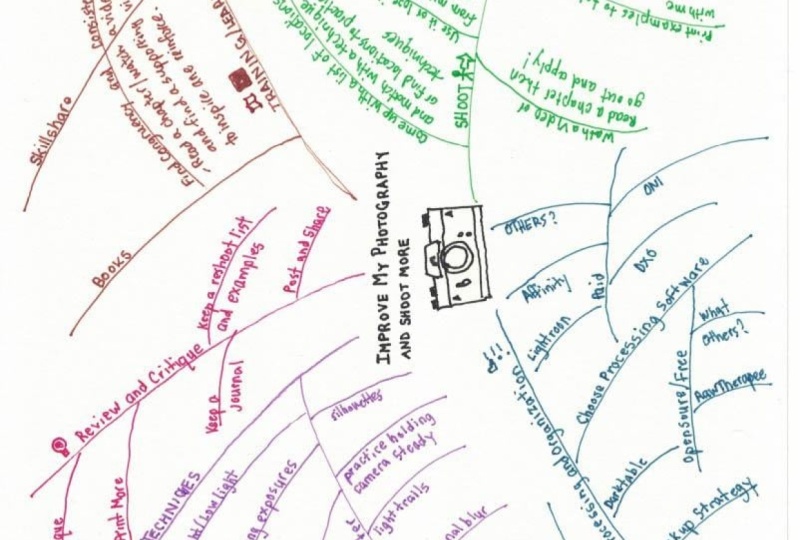 IMPROVE MY PHOTOGRAPHY
AND SHOOT MORE
SHOOT
Come up with a list of locations
and match with a technique
or find locations to practice
techniques
Use it as
from
With a video or
Read a chapter then
go out and apply!
Print examples to
with me
TRAINING
Read a chapter/watch a video
and find a supporting
to inspire and reinforce.
Find congruency and
consist
Skillshare
Books
Review and Critique
Post and Share
Keep a reshoot list
and examples
Keep a
Journal
Print More
que
TECHNIQUES
low light
exposures
silhouettes
practice holding
camera steady
light trails
blur
Processing and Organization
Choose Processing Software
Paid
OTHERS?
Affinity
Lightroom
ON1
DXO
Opensoure/Free
What
others?
RawTherapee
Darktable
kup strategy